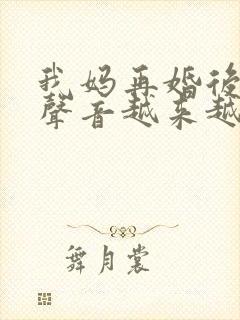 我妈再婚後
聲音越来越
舞月裳